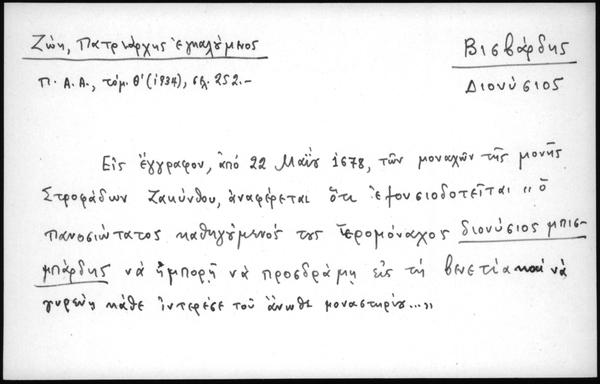 Ζώη, Πατριάρχης ἐγκαλύμενος
Βισβάρδης
Π. Α. Α., τόμ. Θ' (1934), σελ. 252.-
Διονύσιος
Εἰς ἔγγραφον, ἀπό 22 Μαΐου 1678, τῶν μοναχῶν τῆς μονῆς
Στροφάδων Ζακύνθου, ἀναφέρεται ὅτι ἐξουσιοδοτεῖται "ὁ
πανοσιώτατος καθηγύμενός τυς ἱερομόναχος διονύσιος μπισ-
μπάρδης νά ἠμπορῆ νά προσδράμη εἰς τή βενετία καί νά
γυρεύη κάθε ἰντερέσε τοῦ ἄνωθε μοναστηρίυ..."